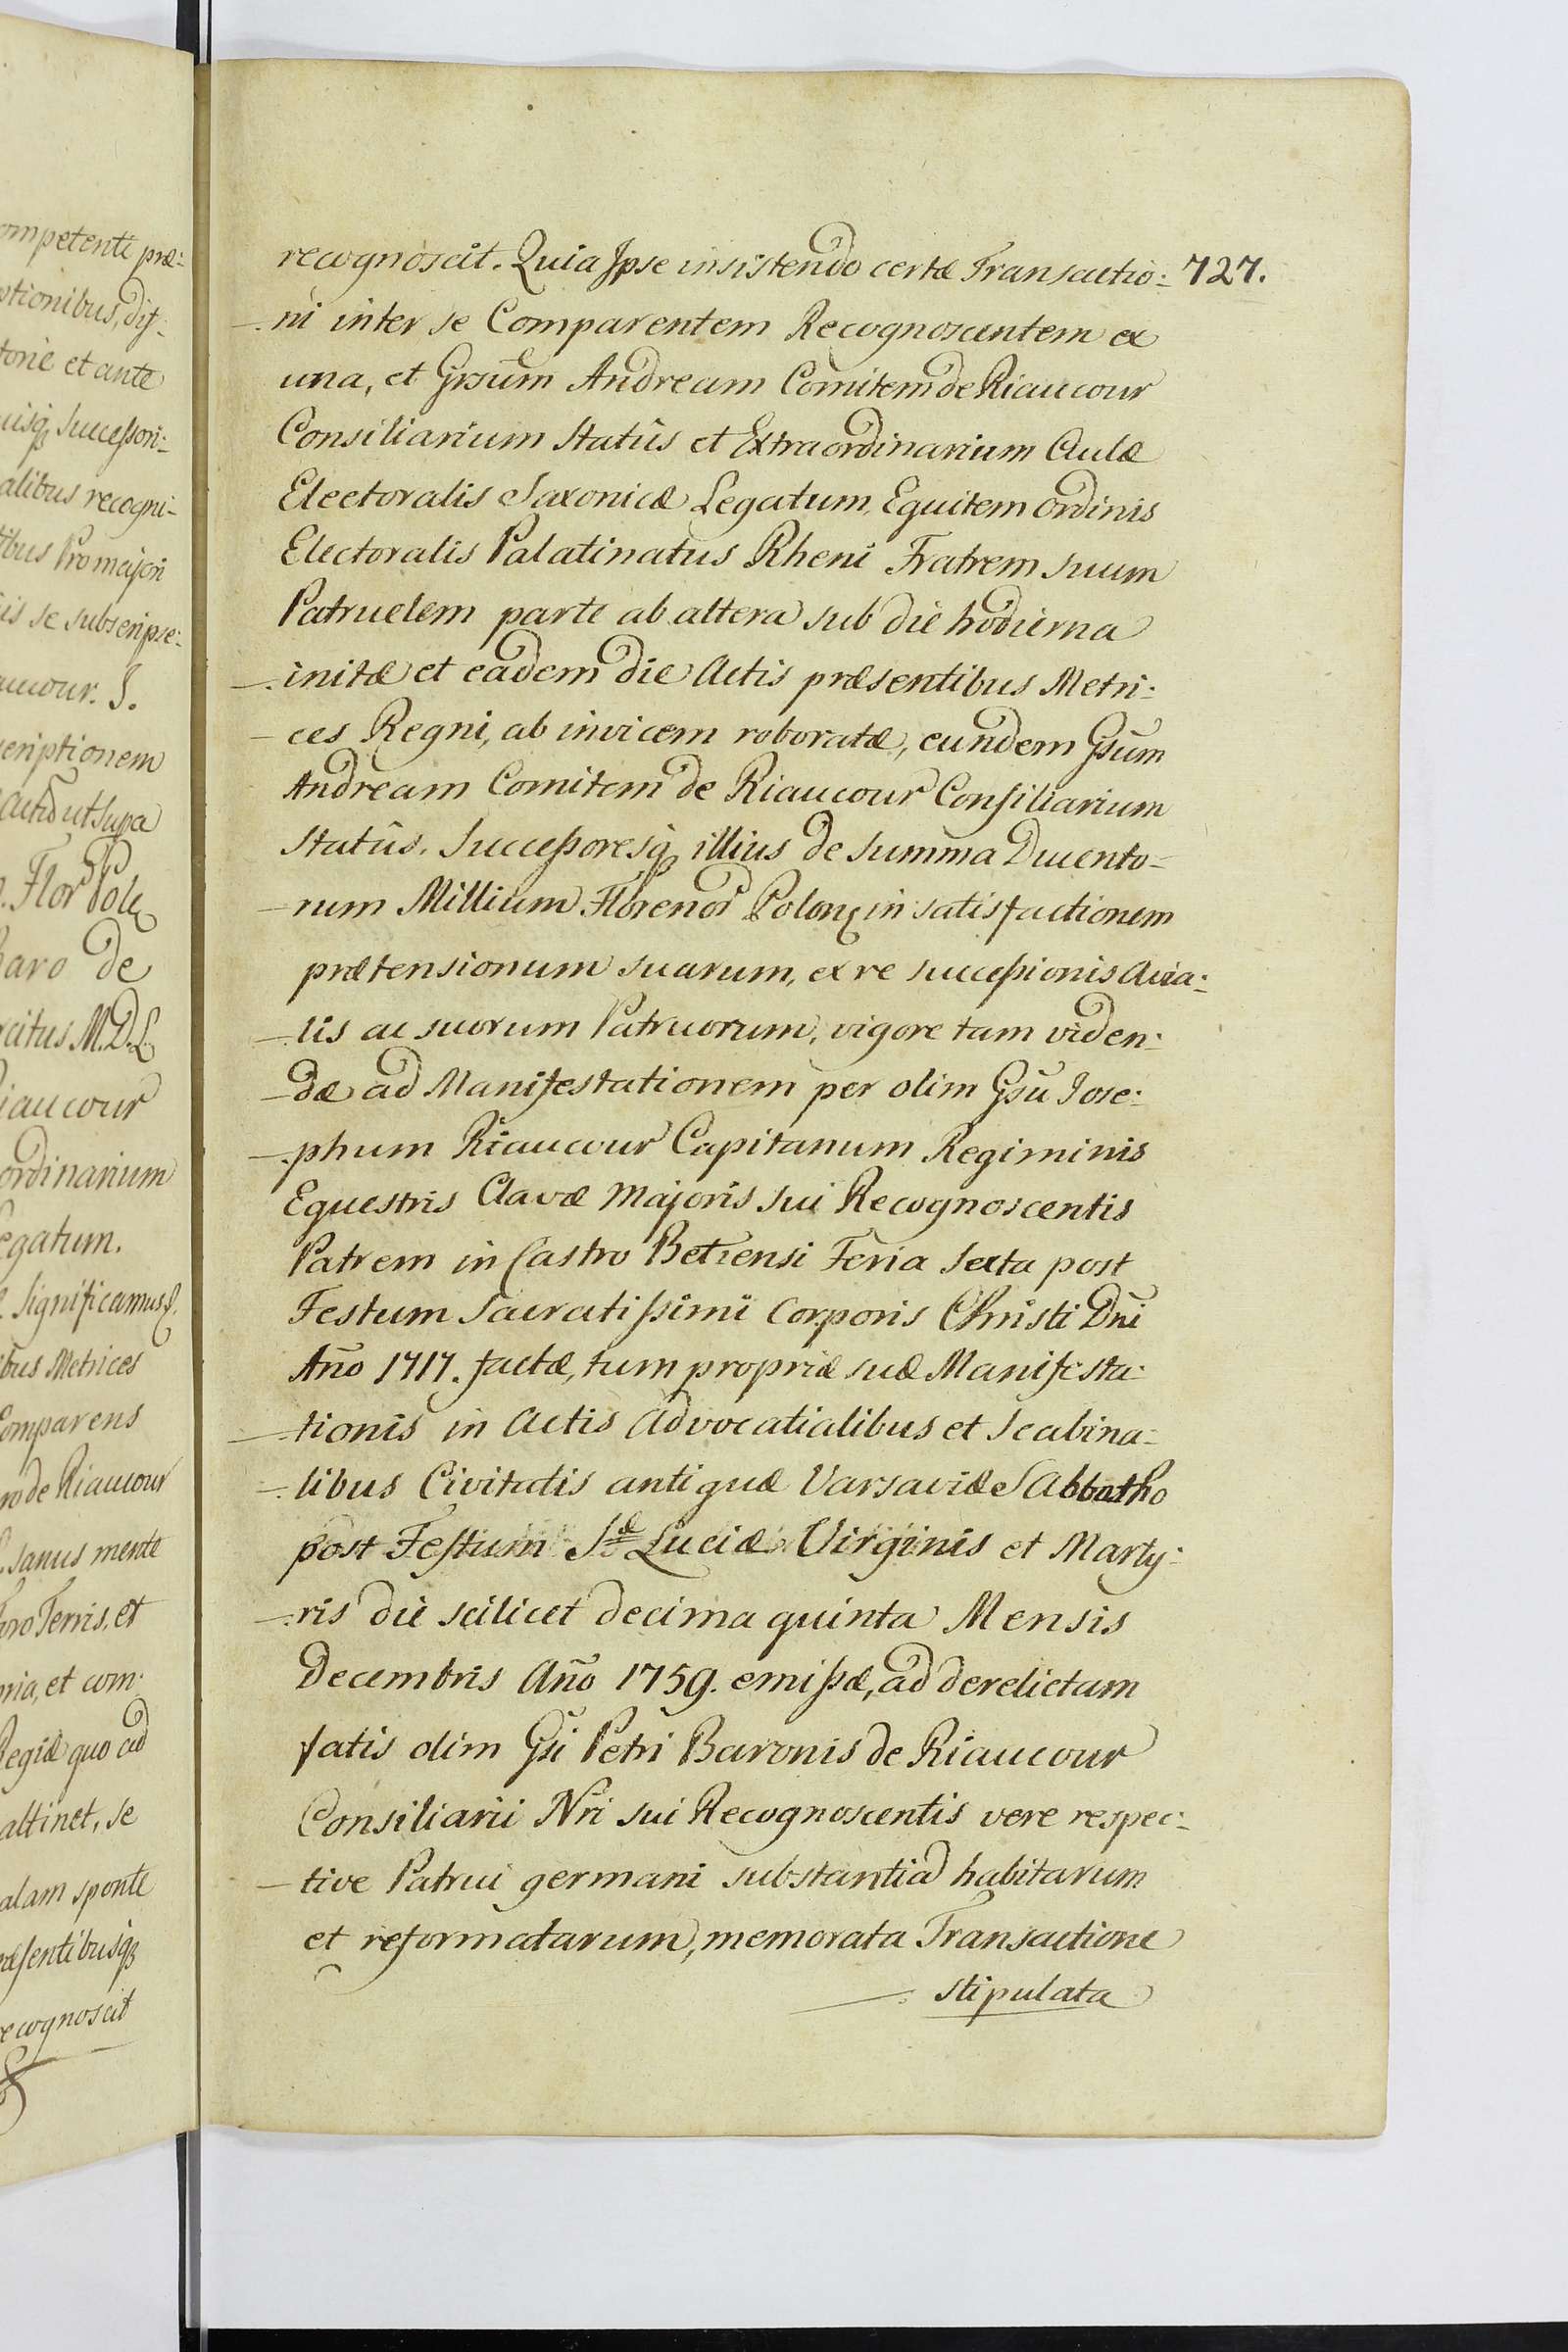 ompetenti præ:
ptionibus, dis:
torie et ante
uisq successori:
alibus recogni-
tibus Pro majori
is se subscripse:
aucour. J.
scriptionem
ut supa
. Flor Pole
baro de
citus M.D.L
Riaucour
ordinarium
Legatum.
Significamus
ibus Metrices
Comparens
ro de Riaucour
sanus mente
Foro Terris, et
ria, et com:
Regiæ quo ad
attinet, se
alam sponte
ræsentibusq
recognoscit
727.
recognoscit. Quia Ipse insistendo certæ Transactio:
-ni inter se Comparentem Recognoscentem ex
una, et Grsum Andream Comitem de Riaucour
Consiliarium Statûs et Extraordinarium Aulæ
Electoralis Saxonicæ Legatum, Equitem Ordinis
Electoralis Palatinatus Rheni Fratrem suum
Patruelem parte ab altera sub die hodierna
-initæ et eadem die Actis præsentibus Metri:
-ces Regni, ab invicem roboratæ, eundem Gsum
Andream Comitem de Riaucour Consiliarium
Statûs. Successoresq illius de Summa Ducento-
-rum Millium Florenor Polon in satisfactionem
prætensionum suarum, ex re successionis Avia:
-lis ac suorum Patruorum, vigore tam viden:
-dæ ad Manifestationem per olim Gsu Jose:
-phum Riaucour Capitanum Regiminis
Equestris Clavæ Majoris sui Recognoscentis
Patrem in Castro Betiensi Feria Sexta post
Festum Sacratissimi Corporis Christi Dni
Año 1717. factæ, tum propriæ suæ Manifesta:
-tionis in Actis Advocatialibus et Scabina:
-libus Civitatis antiquæ Varsaviæ Sabbatho
post Festum Stæ Luciæ Virginis et Marty:
-ris die scilicet decima quinta Mensis
Decembris Año 1759. emissæ, ad derelictam
fatis olim Gsi Petri Baronis de Riaucour
Consiliarii Nri sui Recognoscentis vere respec:
-tive Patrui germani substantia habitarum
et reformatarum, memorata Transactione
stipulata